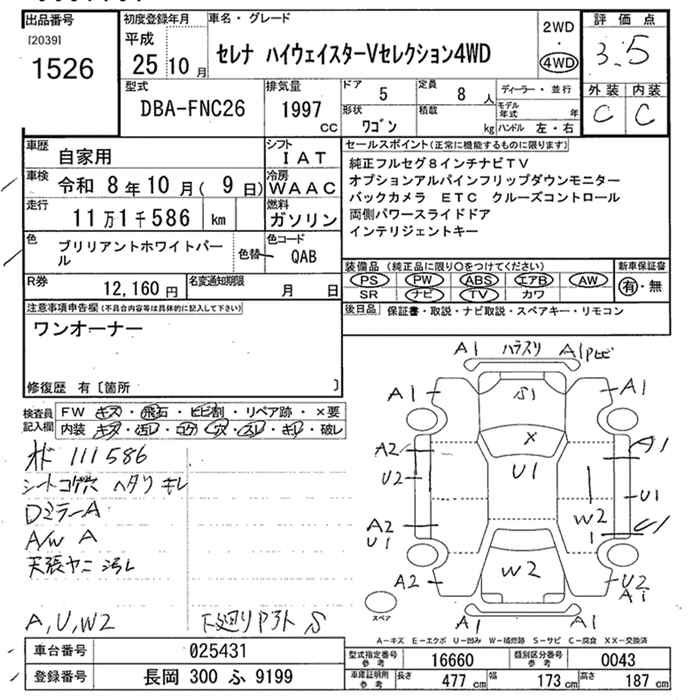 出品番号
[2039]
1526
初度登録年月
平成
25 10 月
車名・グレード
セレナ ハイウェイスターVセレクション4WD
2WD
4WD
評価点
3.5
外装 内装
C C
型式
DBA-FNC26
排気量
1997 cc
ドア 5
定員 8 人
形状 ワゴン
積載 kg
ディーラー・並行
モデル年式 年
ハンドル 左・右
車歴 自家用
シフト IAT
車検 令和 8年10月( 9日)
冷房 WAAC
走行 11万1千586 km
燃料 ガソリン
色 ブリリアントホワイトパール
色替
色コード QAB
R券 12,160 円
名変通知期限 月 日
セールスポイント(正常に機能するものに限ります)
純正フルセグ8インチナビTV
オプションアルパインフリップダウンモニター
バックカメラ ETC クルーズコントロール
両側パワースライドドア
インテリジェントキー
装備品 (純正品に限り○をつけてください)
PS PW ABS エアB AW
SR ナビ TV カワ
新車保証書
有・無
後日品 保証書・取説・ナビ取説・スペアキー・リモコン
注意事項申告欄(不具合内容等は具体的に記入して下さい)
ワンオーナー
修復歴 有〔箇所 〕
検査員記入欄
FW キズ・飛石・ヒビ割・リペア跡・×要
内装 キズ・汚レ・コゲ・穴・スレ・キレ・破レ
111586
シートコゲ穴 ヘタリ キレ
DミラーA
A/W A
天張ヤニ 汚レ
A,U,W2
下廻り S
A1 ハラスリ A1
A1 S1 A1
X
A2 A1
U2 U1 U1
W2
A2 1 U1
U1
W2
A2 U2
A1
A1 A1
スペア
A-キズ E-エクボ U-凹み W-補修跡 S-サビ C-腐食 XX-交換済
車台番号 025431
登録番号 長岡 300 ふ 9199
型式指定番号 参考 16660
類別区分番号 参考 0043
車庫証明用 参考 長さ 477 cm 幅 173 cm 高さ 187 cm